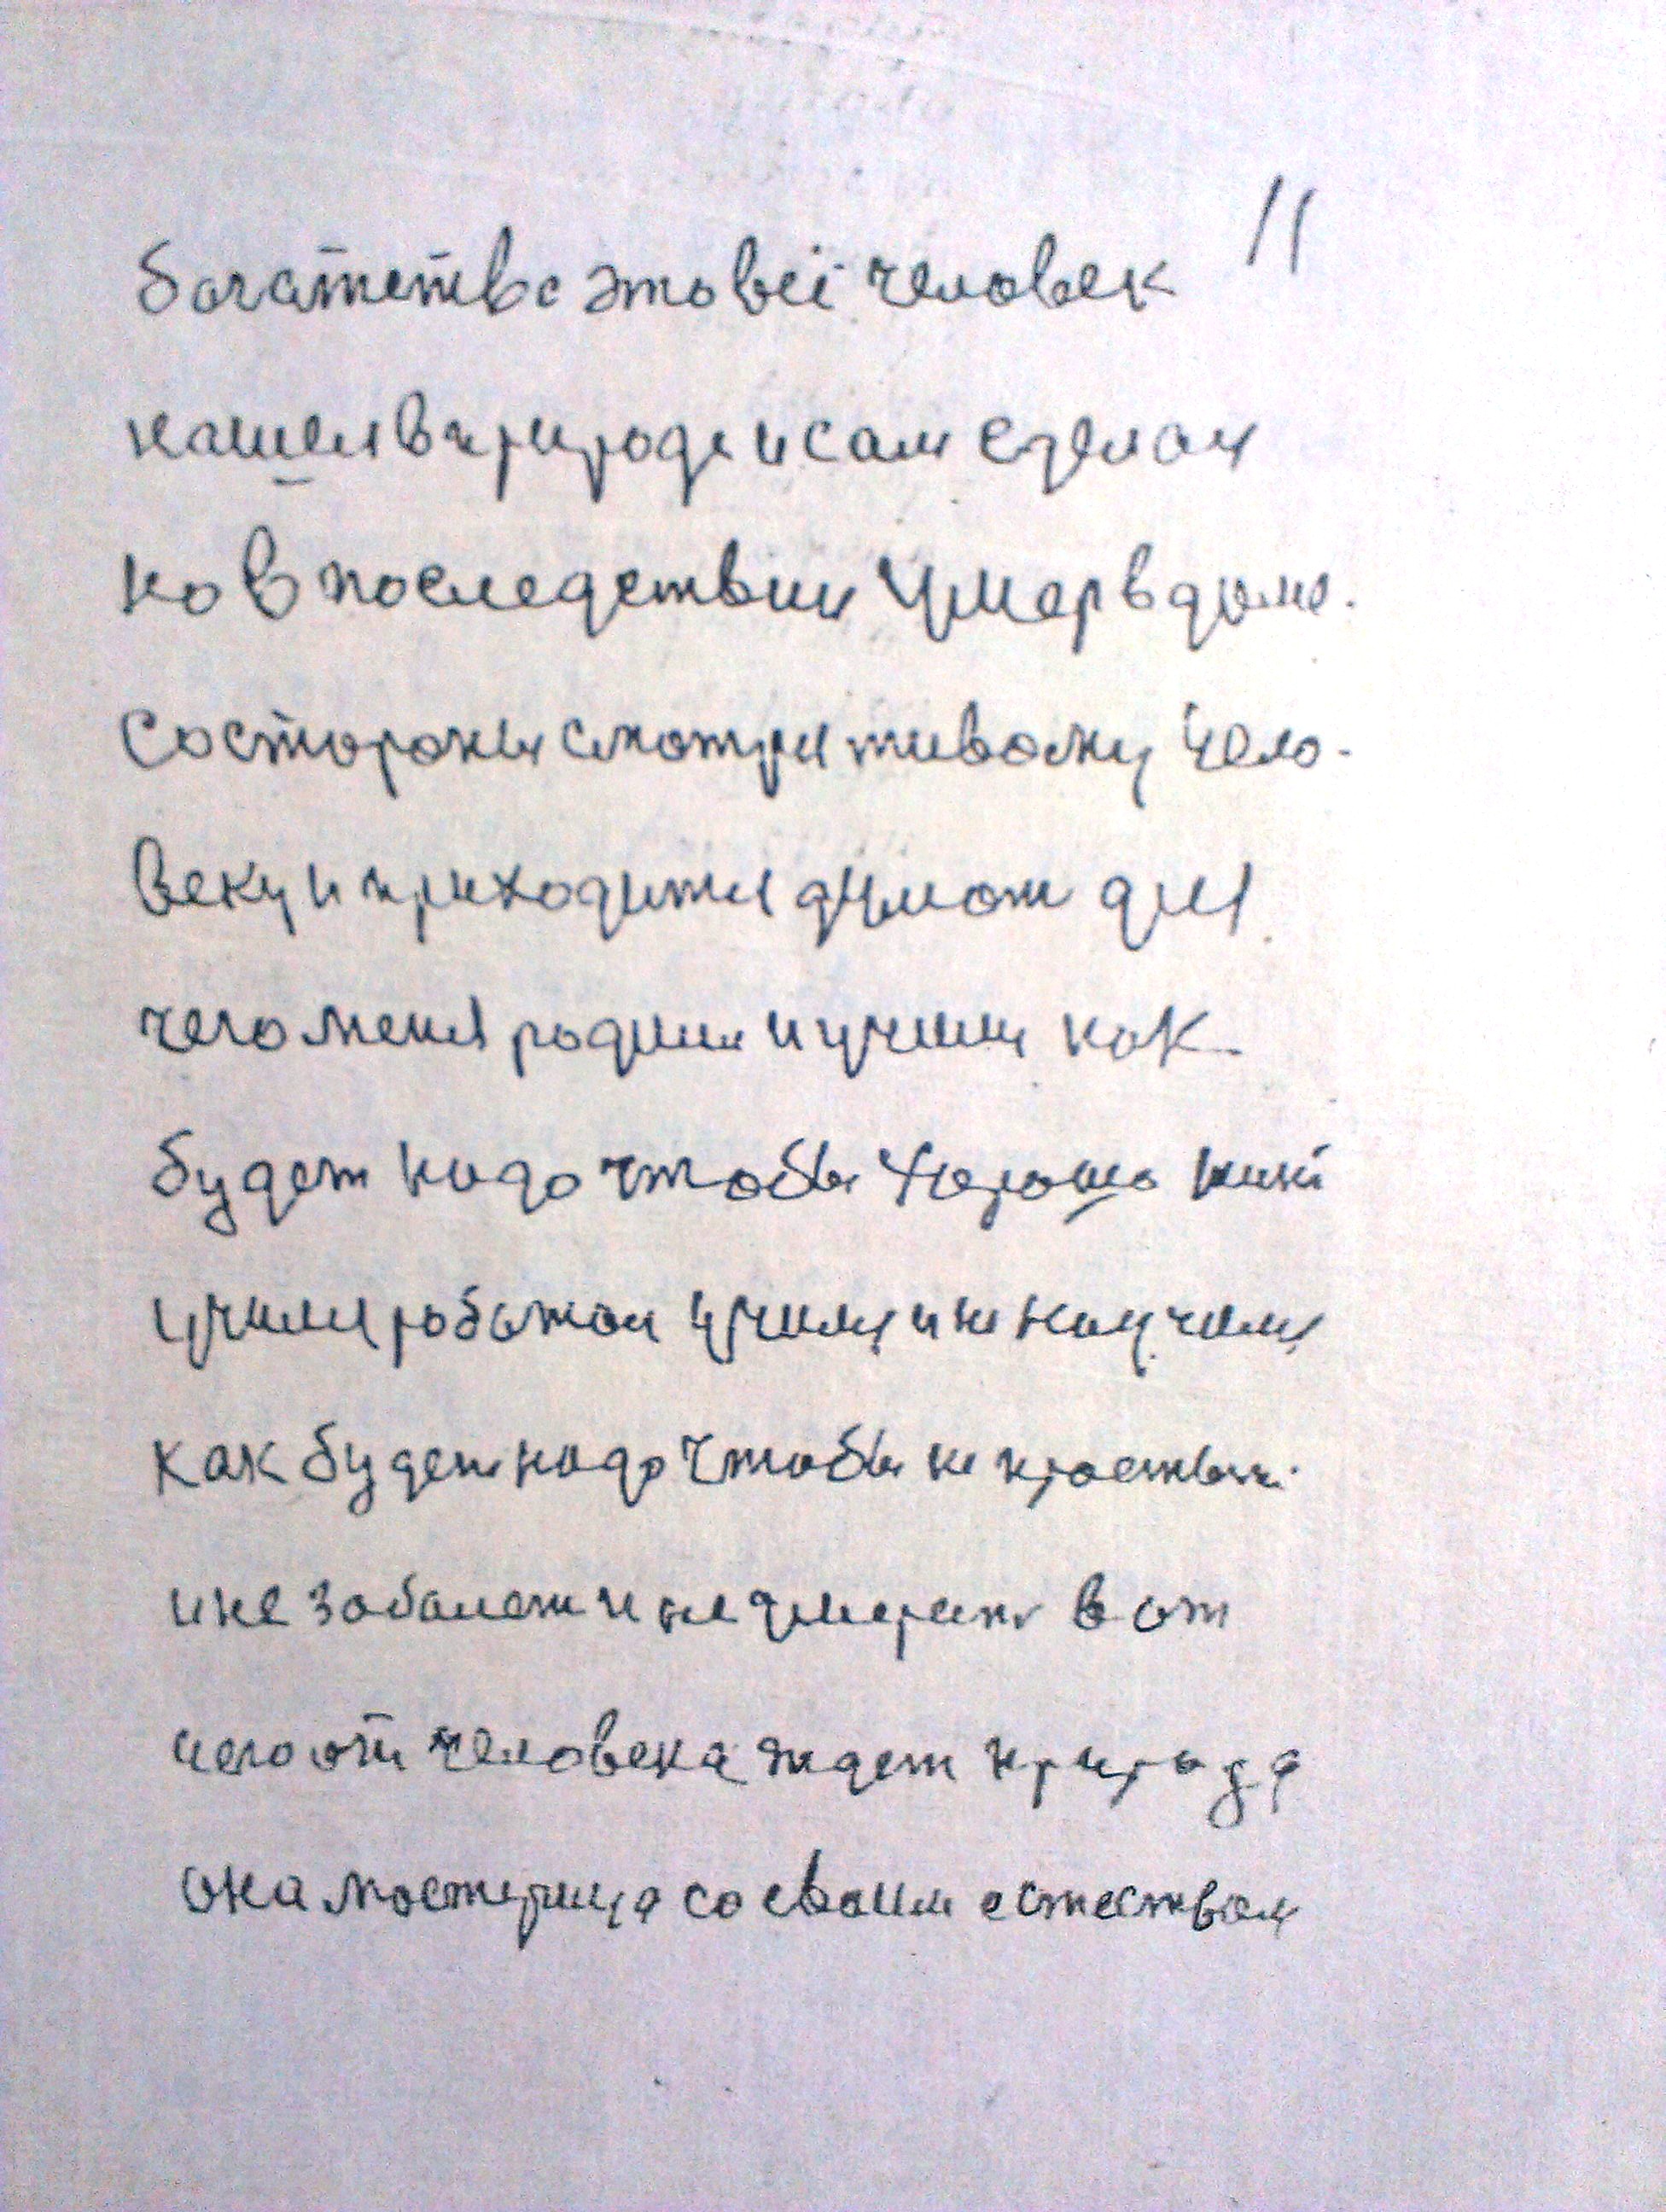 11
богатство это всё человек
нашел в природе и сам сделал
но в последствии умер в доме.
Со стороны смотря живому чело-
веку и приходится думат для
чего меня родили и учили как
будет надо чтобы хорошо жил
учили работал учился и не научился
как будет надо чтобы не простыт
и не заболет и не умерет вот
чего от человека ждет природа
она мастерица со своим естеством